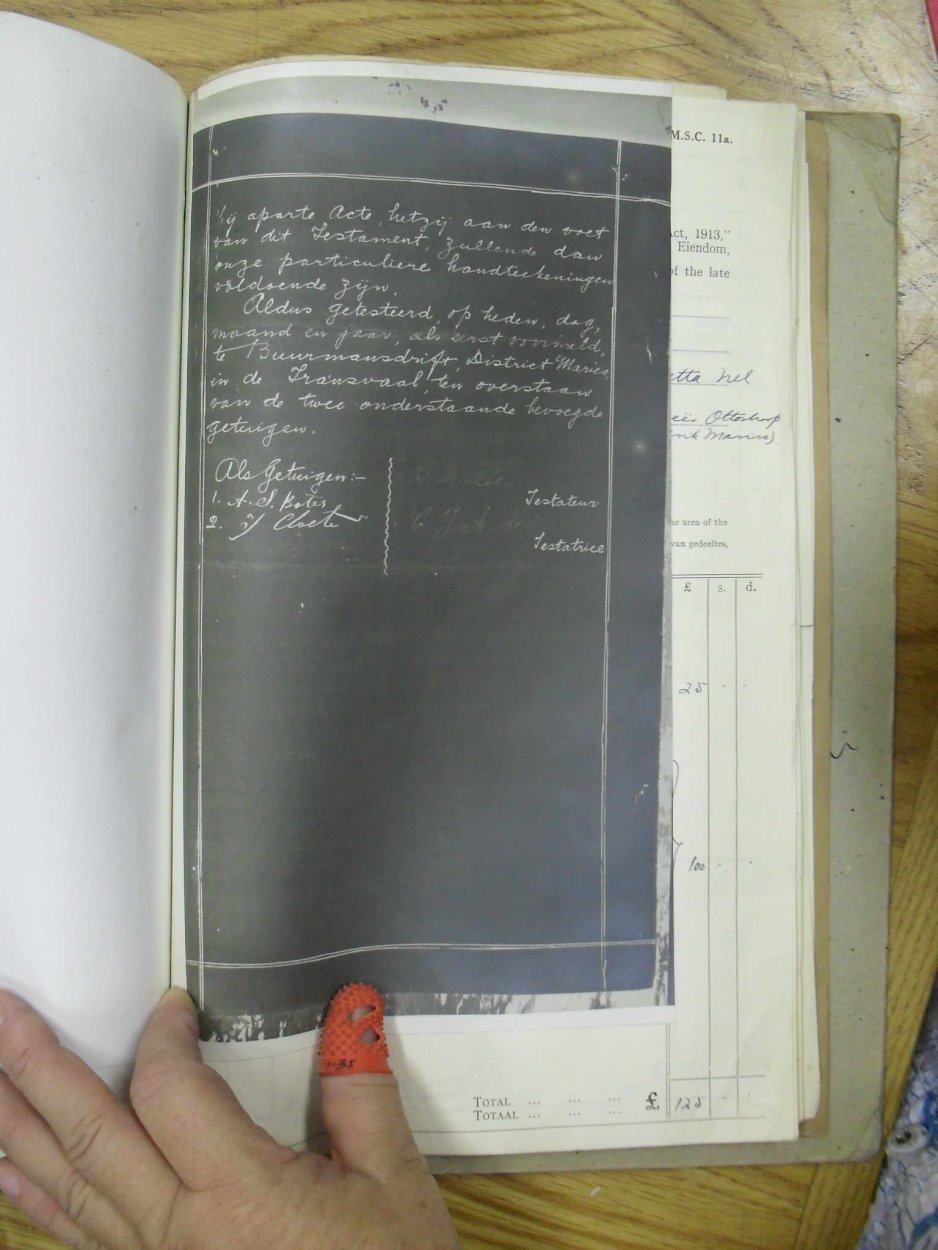 bij aparte Acte, hetzij aan den voet
van dit Testament, zullende dan
onze particuliere handteekeningen
voldoende zijn.
Aldus getesteerd, op heden, dag,
maand en jaar, als eerst voormeld,
te Buurmansdrift, District Marico,
in de Transvaal, ten overstaan
van de twee onderstaande bevoegde
getuigen.
Als Getuigen:-
1. A. S. Botes
2. Cloete
Testateur
Testatrice
M.S.C. 11a.
Act, 1913,"
Eiendom,
of the late
etta Nel
Ottoshoop
Marico)
he area of the
van gedeeltes,
£ s. d.
25 - -
100 - -
TOTAL ... ... ...
TOTAAL ... ... ... £ 125
1-35